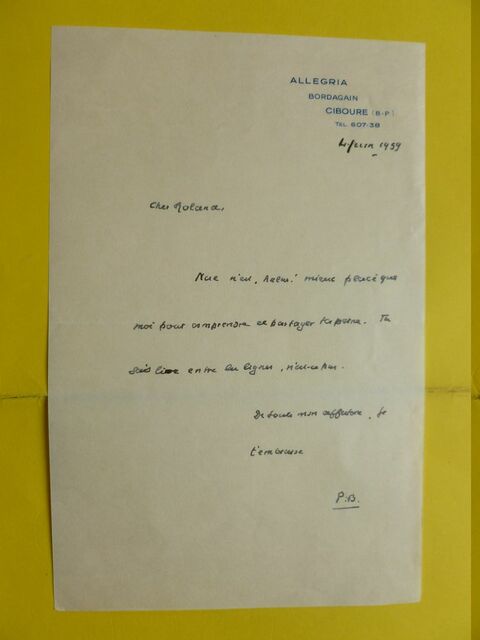 ALLEGRIA
BORDAGAIN
CIBOURE (B-P)
TEL 607-38
4 juin 1959
Cher Roland,
Nul n'est, hélas! mieux placé que
moi pour comprendre et partager ta peine. Tu
sais lire entre les lignes, n'est-ce pas.
De toute mon affection, je
t'embrasse
P.B.